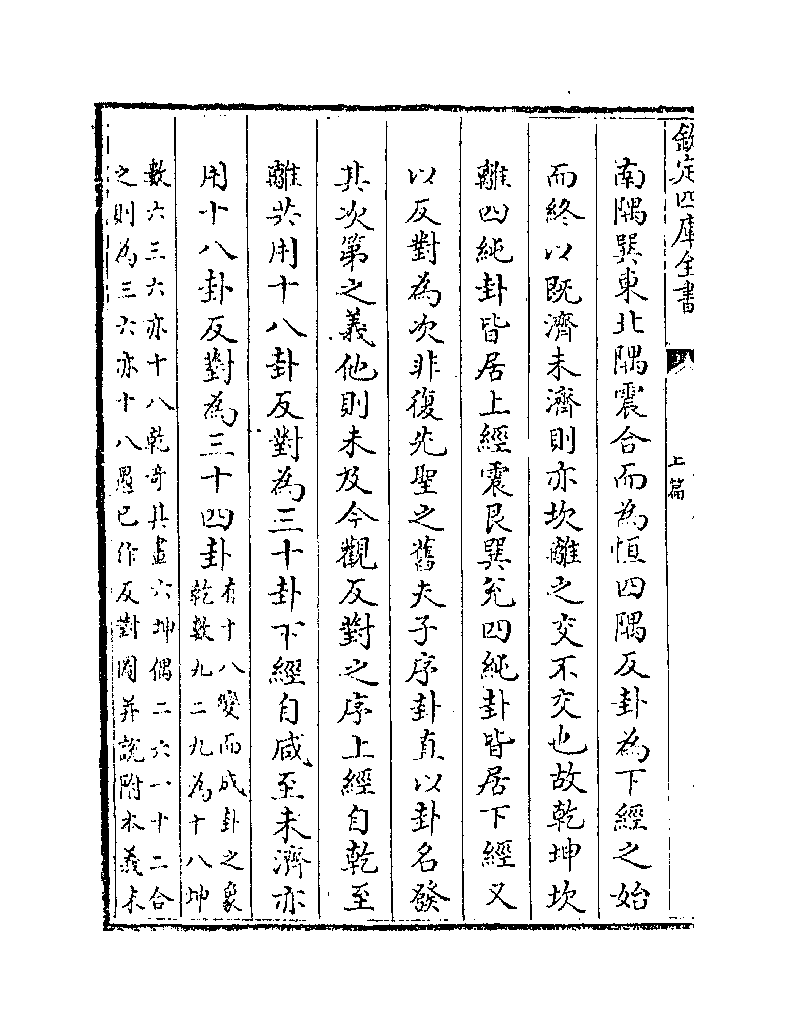 欽定四庫全書
上篇
南隅巽東北隅震合而為恒四隅反卦為下經之始
而終以既濟未濟則亦坎離之交不交也故乾坤坎
離四純卦皆居上經震艮巽兌四純卦皆居下經又
以反對為次非復先聖之舊夫子序卦直以卦名發
其次第之義他則未及今觀反對之序上經自乾至
離共用十八卦反對為三十卦下經自咸至未濟亦
用十八卦反對為三十四卦有十八變而成卦之象
乾數九二九為十八坤
數六三六亦十八乾奇其畫六坤偶二六一十二合
之則為三六亦十八愚已作反對圖并說附本義末